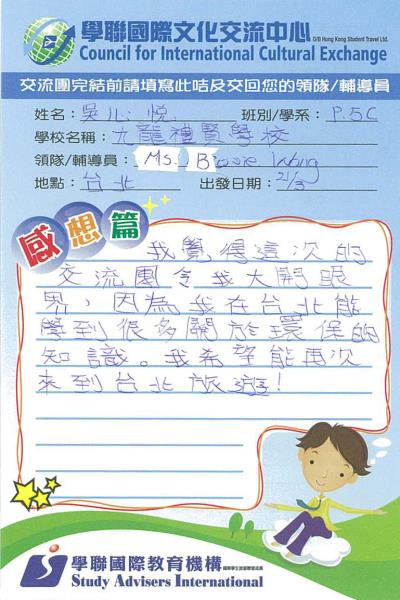 學聯國際文化交流中心
O/B Hong Kong Student Travel Ltd.
Council for International Cultural Exchange
交流團完結前請填寫此咭及交回您的領隊/輔導員
姓名： 吳心悅 班別/學系： P.5C
學校名稱： 九龍禮賢學校
領隊/輔導員： Ms. Bessie Wong
地點： 台北 出發日期： 21/3
感想篇
我覺得這次的
交流團令我大開眼
界，因為我在台北能
學到很多關於環保的
知識。我希望能再次
來到台北旅遊！
學聯國際教育機構
Study Advisers International